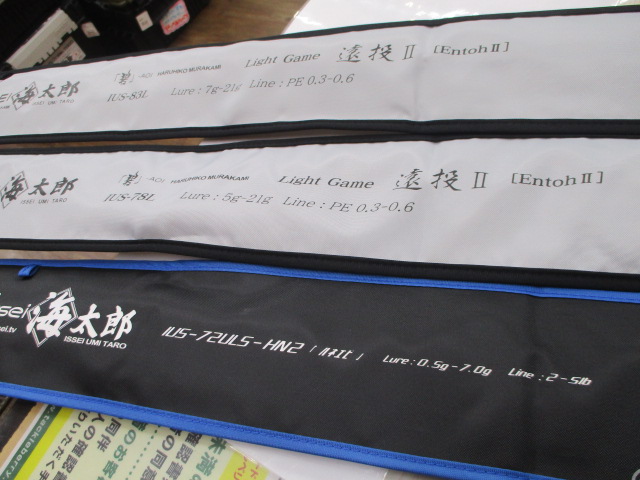 海太郎
ISSEI UMI TARO
「碧」-AOI- HARUHIKO MURAKAMI
IUS-83L
Light Game 遠投Ⅱ [EntohⅡ]
Lure:7g-21g Line:PE 0.3-0.6
海太郎
ISSEI UMI TARO
「碧」-AOI- HARUHIKO MURAKAMI
IUS-78L
Light Game 遠投Ⅱ [EntohⅡ]
Lure:5g-21g Line:PE 0.3-0.6
ssei
ssei.tv
海太郎
ISSEI UMI TARO
IUS-72ULS-HN2
Lure:0.5g-7.0g Line:2-5lb
tackleberry